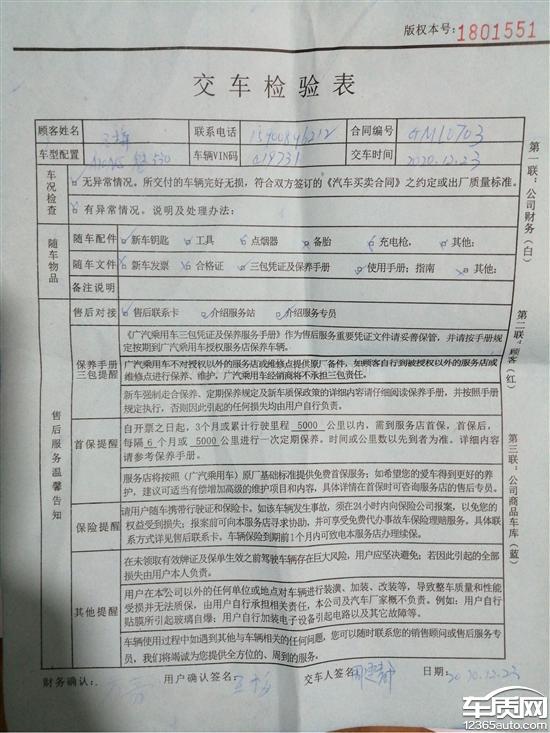 版权本号：1801551
交车检验表
顾客姓名 联系电话 合同编号 GM10703
车型配置 车辆VIN码 019731 交车时间 2020.12.23
车况检查 无异常情况。所交付的车辆完好无损，符合双方签订的《汽车买卖合同》之约定或出厂质量标准。
有异常情况。说明及处理办法：
随车物品 随车配件 新车钥匙 工具 点烟器 备胎 充电枪， 其他：
随车文件 新车发票 合格证 三包凭证及保养手册 使用手册；指南 其他：
备注说明
售后服务温馨告知
售后对接 售后联系卡 介绍服务站 介绍服务专员
保养手册三包提醒
《广汽乘用车三包凭证及保养服务手册》作为售后服务重要凭证文件请妥善保管，并请按手册规
定按期到广汽乘用车授权服务店保养车辆。
广汽乘用车不对授权以外的服务店或维修点提供原厂备件，如顾客自行到被授权以外的服务店或
维修点进行保养、维护，广汽乘用车经销商将不承担三包责任。
新车强制走合保养、定期保养规定及新车质保政策的详细内容请仔细阅读保养手册，并按照手册
规定执行，否则因此引起的任何损失均由用户自行负责。
首保提醒
自开票之日起，3个月或累计行驶里程 5000 公里以内，需到服务店首保，首保后，
每隔 6 个月或 5000 公里进行一次定期保养。时间或公里数以先到者为准。详细内容
请参考保养手册。
服务店将按照（广汽乘用车）原厂基础标准提供免费首保服务；如希望您的爱车得到更好的养
护，建议可适当有偿增加高级的维护项目和内容，具体详情在首保时可咨询服务店的售后专员。
保险提醒
请用户随车携带行驶证和保险卡。如该车辆发生事故，须在24小时内向保险公司报案，以免您的
权益受到损失；报案前可向本服务店寻求协助，并可享受免费代办事故车保险理赔服务，具体联
系方式详见售后联系卡。车辆保险到期前1个月内可致电本服务店办理续保。
其他提醒
在未领取有效牌证及保单生效之前驾驶车辆存在巨大风险，用户应坚决避免；若因此引起的全部
损失由用户本人负责。
用户在本公司以外的任何单位或地点对车辆进行装潢、加装、改装等，导致整车质量和性能
受损并无法质保，由用户自行承担相关责任，本公司及汽车厂家概不负责。例如：用户自行
贴膜所引起玻璃自爆；用户自行加装电子设备引起电路以及其它故障等。
车辆使用过程中如遇到其他与车辆相关的任何问题，您可以随时联系您的销售顾问或售后服务专
员，我们将竭诚为您提供全方位的、周到的服务。
财务确认： 用户确认签名： 交车人签名 日期： 2020.12.23
第一联：公司财务（白）
第二联：顾客（红）
第三联：公司商品车库（蓝）
车质网
12365auto.com